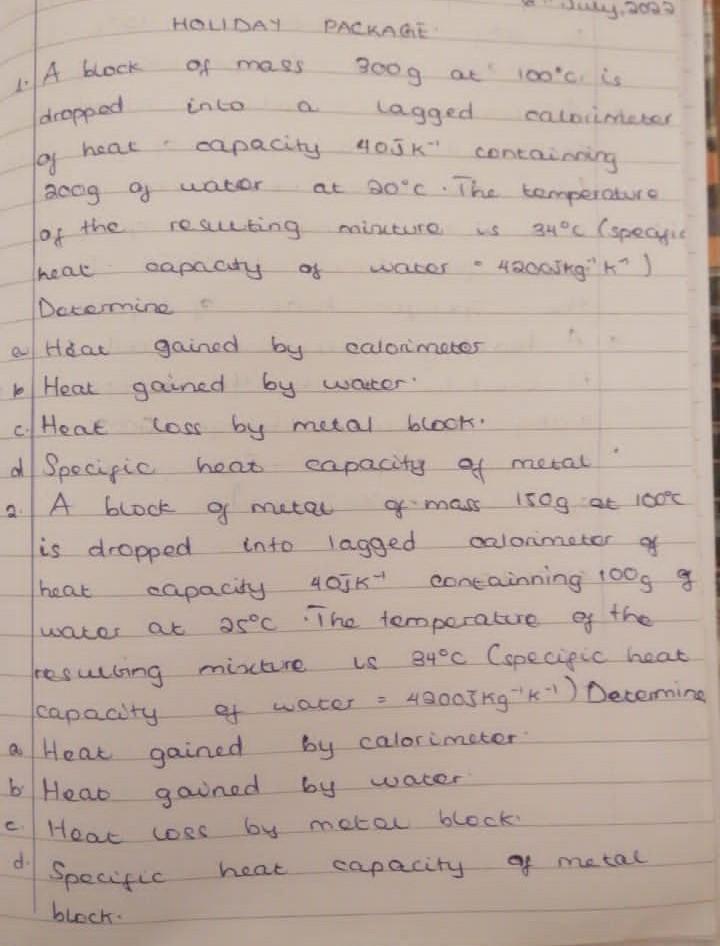 July, 2022
HOLIDAY PACKAGE.
1. A block of mass 300g at 100°c is
dropped into a lagged calorimeter
of heat capacity 40JK⁻¹ containning
200g of water at 20°c. The temperature
of the resulting mixture is 34°c (specific
heat capacity of water = 4200Jkg⁻¹K⁻¹)
Determine
a Heat gained by calorimeter
b Heat gained by water.
c. Heat loss by metal block.
d Specific heat capacity of metal.
2. A block of metal of mass 150g at 100°c
is dropped into lagged calorimeter of
heat capacity 40JK⁻¹ containning 100g of
water at 25°c. The temperature of the
resulting mixture is 34°c (specific heat
capacity of water = 4200JKg⁻¹K⁻¹) Determine
a. Heat gained by calorimeter.
b Heat gained by water.
c. Heat loss by metal block.
d. Specific heat capacity of metal
block.